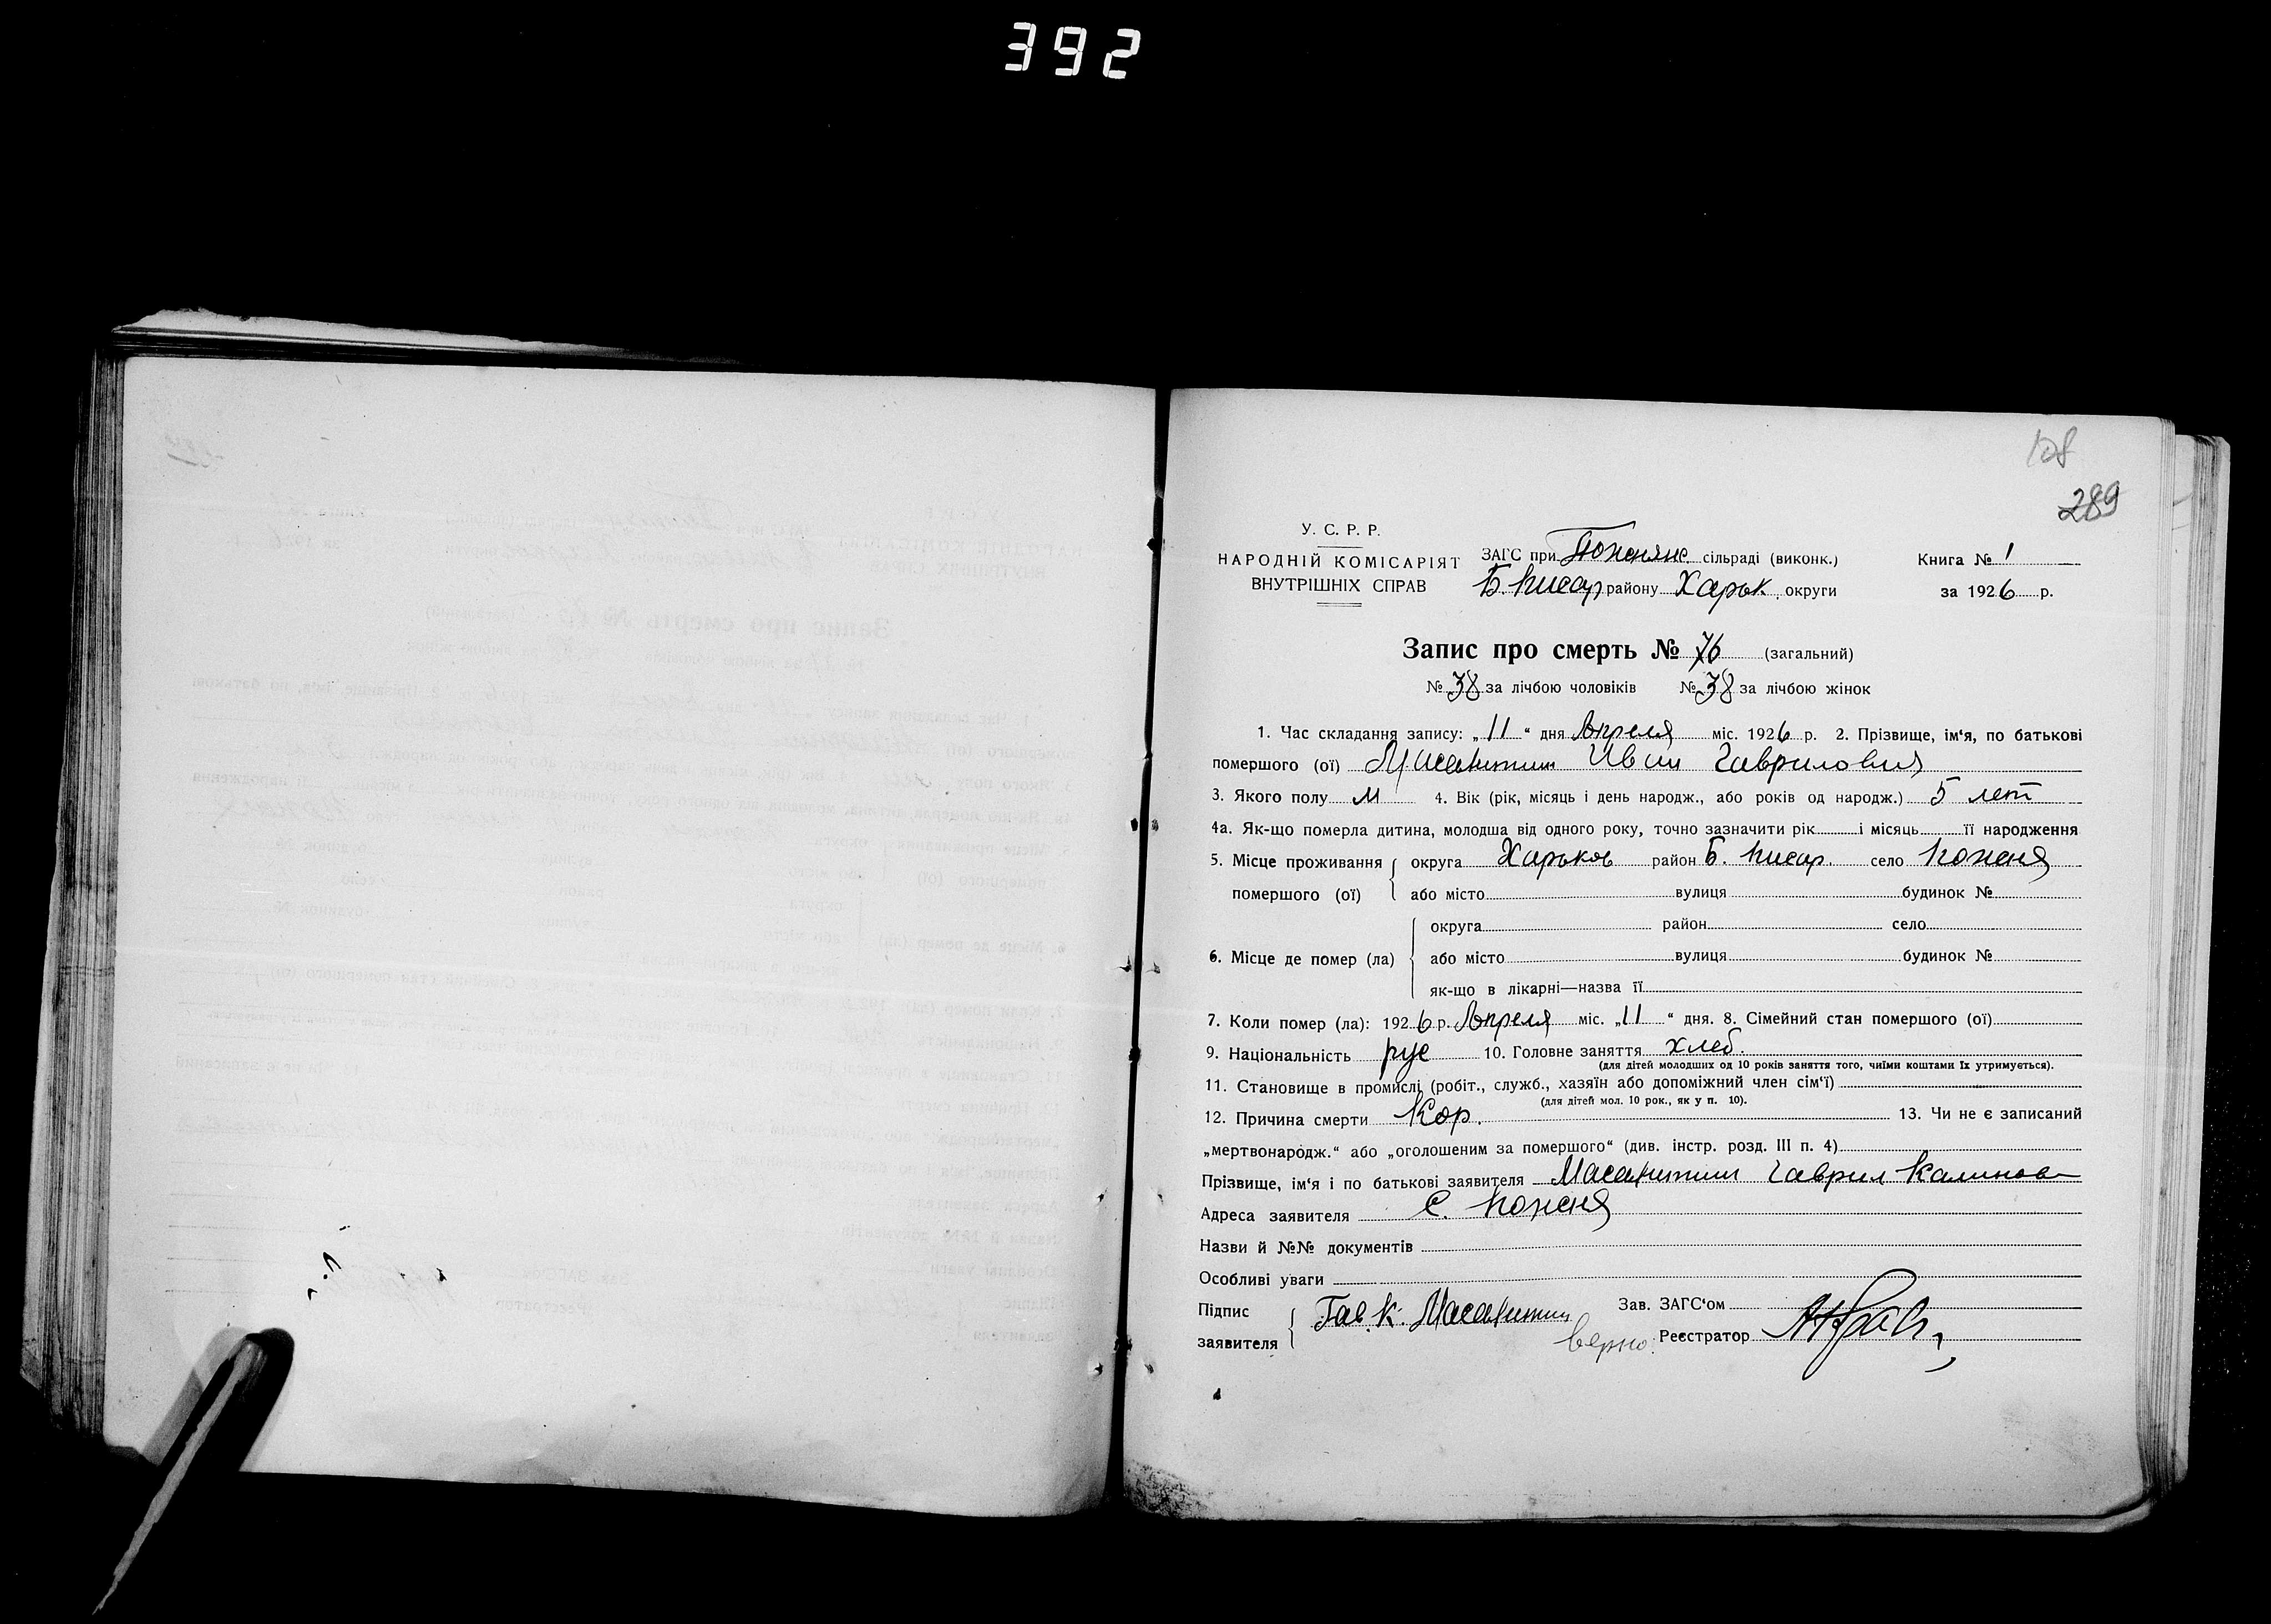 392
108
289
У. С. Р. Р.
НАРОДНІЙ КОМІСАРІЯТ
ВНУТРІШНІХ СПРАВ
ЗАГС при сільраді (виконк.)
Б. Писар району Харьк. округи
Книга № 1
за 1926 р.
Запис про смерть № 76 (загальний)
№ 38 за лічбою чоловіків № 38 за лічбою жінок
1. Час складання запису: „11" дня Апреля міс. 1926 р. 2. Прізвище, ім'я, по батькові
помершого (ої) Иван Гаврилович
3. Якого полу М 4. Вік (рік, місяць і день народж., або років од народж.) 5 лет
4а. Як-що померла дитина, молодша від одного року, точно зазначити рік і місяць її народження
5. Місце проживання округа Харьков район Б. Писар. село Поженя
помершого (ої) або місто вулиця будинок №
округа район село
6. Місце де помер (ла) або місто вулиця будинок №
як-що в лікарні—назва її
7. Коли помер (ла): 1926 р. Апреля міс. „11" дня. 8. Сімейний стан помершого (ої)
9. Національність рус 10. Головне заняття хлеб.
(для дітей молодших од 10 років заняття того, чиїми коштами їх утримується).
11. Становище в промислі (робіт., служб., хазяїн або допоміжний член сім'ї)
(для дітей мол. 10 рок., як у п. 10).
12. Причина смерти Кор. 13. Чи не є записаний
„мертвонародж." або „оголошеним за помершого" (див. інстр. розд. III п. 4)
Прізвище, ім'я і по батькові заявителя Гаврил Калинов
Адреса заявителя С. Поженя
Назви й №№ документів
Особливі уваги
Підпис
заявителя
Гав. К.
Зав. ЗАГС'ом
верно: Реєстратор